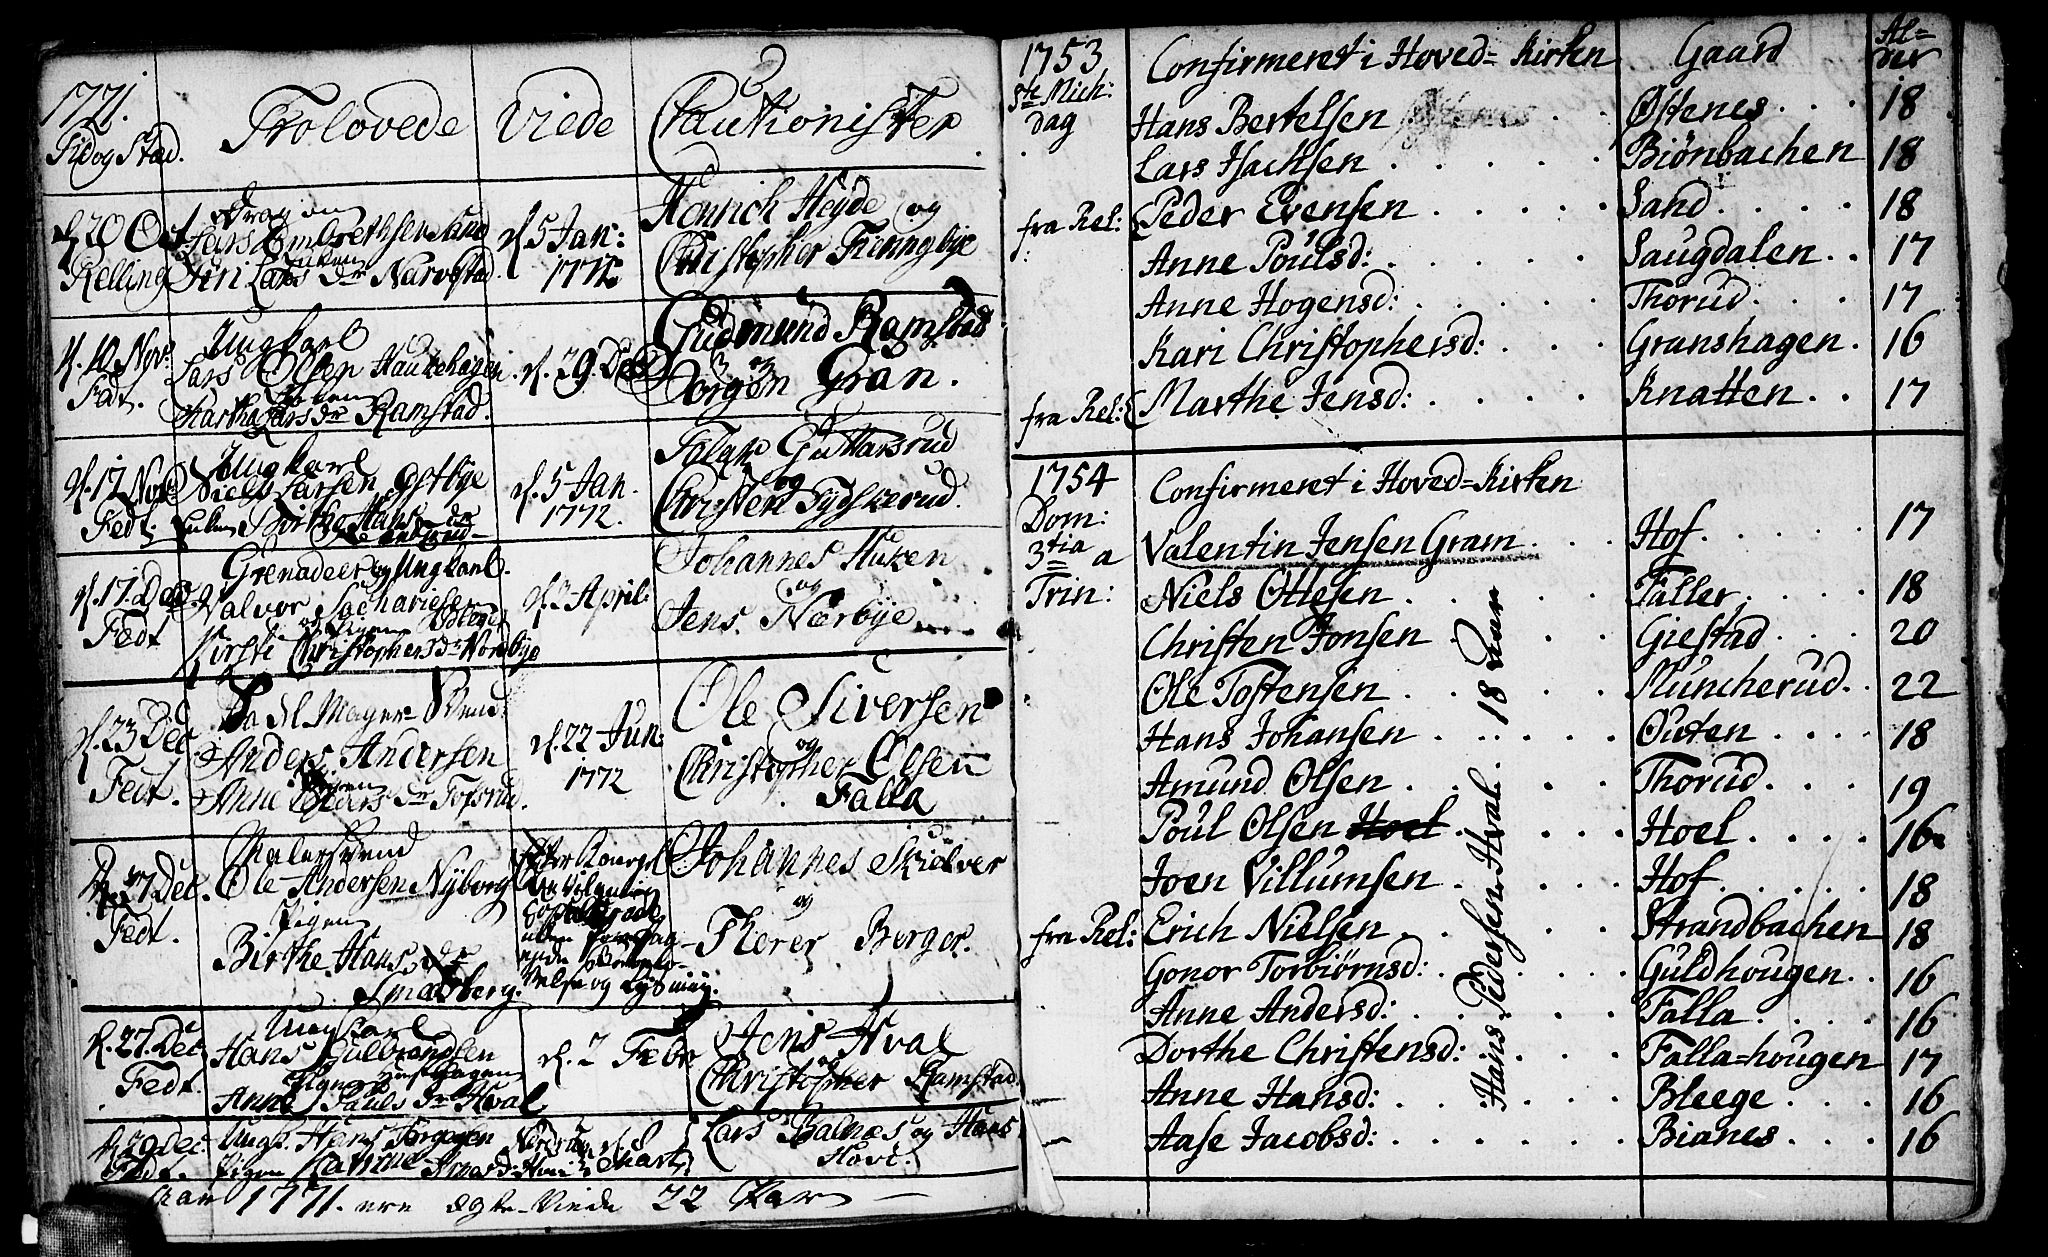 1771.
Tid og Stæd.
Trolovede
Viede
Cautionister
d. 20 Oct
Relling
Dragon
Lars Embrethsen Sand
Enken
Siri Lars Dr Narvestad
d. 5 Jan:
1772
Henrich Heyde og
Christopher Fienngbye
d. 10 Nov:
Fedt.
Ungkarl
Lars Olsen Haukehagen
Martha Lars Dr Ramstad.
d. 29 Dec
Gudmund Ramstad
og
Jørgen Gran.
d. 17 Nov
Fedt.
Ungkarl
Niels Larsen Østbye
Birthe Hans dr
d. 5 Jan.
1772.
og
Christen Tydskerud.
d. 17. Dec
Fedt
Grenadeer og Ungkarl.
Halvor Sachariesen
og Pigen
Kirsti Christophers Dr Nordbye
d. 3 April:
Johannes Huken
og
Jens Nærbye
d. 23 Dec
Fedt.
Anders Andersen
Pigen
Anne Peders Dr Tosrud.
d. 22 Jun:
1772
Ole Siversen
og
Christopher Olsen
Falla
d. 27 Dec.
Fedt.
Malersvend
Ole Andersen Nyborg
Pigen
Birthe Hans Dr
Smedberg.
Johannes Skielver
og
Therer Berger.
d. 27. Dec
Fedt.
Ungkarl
Hans Gulbrandsen
Anne Pauls Dr Hval
d. 2 Febr
Jens Hval
og
Christopher Ramstad.
d. 29 Dec:
Fedt.
Ungk. Hans Jørgensen
Pigen Karine
d. 8
Mart.
Lars Balnes og Hans
Hovi.
1771. ere ægte-Viede 22 Par
1753
Ste Mich:
dag
Confirmeret i Hoved=Kirken
Gaard
Al=
der
Hans Bertelsen . . Østenes . . . 18
Lars Isachsen . . . . . Biönbachen 18
fra Rel: Peder Evensen . . . . . Sand . . . . 18
Anne Poulsd: . . . . . Saugdalen . . 17
Anne Hogensd: . . . . . Thorud . . . 17
Kari Christophersd: . . . Granshagen . 16
fra Rel: Marthe Jensd: . . . . . Knatten . . 17
1754
Dom:
3tia a
Trin:
Confirmeret i Hoved=Kirken
Valentin Jensen Gram . . . Hof . . . . . 17
Niels Ottesen . . . . . Faller . . . . 18
Christen Jonsen . . . . Giestad . . . 20
Ole Tostensen . . . . . Müncherud . . 22
Hans Johansen . . . . . Outen . . . . 18
Amund Olsen . . . . . Thorud . . . 19
Poul Olsen Hoel . . . . . Hoel . . . . 16
Joen Villumsen . . . . Hof . . . . . 18
fra Rel: Erich Nielsen . . . . . Strandbachen 18
Gonor Torbiörnsd: . . . . Guldhougen . . 16
Anne Andersd: . . . . . Falla . . . . 16
Dorthe Christensd: . . . . Falla=hougen 17
Anne Hansd: . . . . . Bleege . . . 16
Aase Jacobsd: . . . . . Bianes . . . 16
Hans Pedersen Hval. 18 Aar